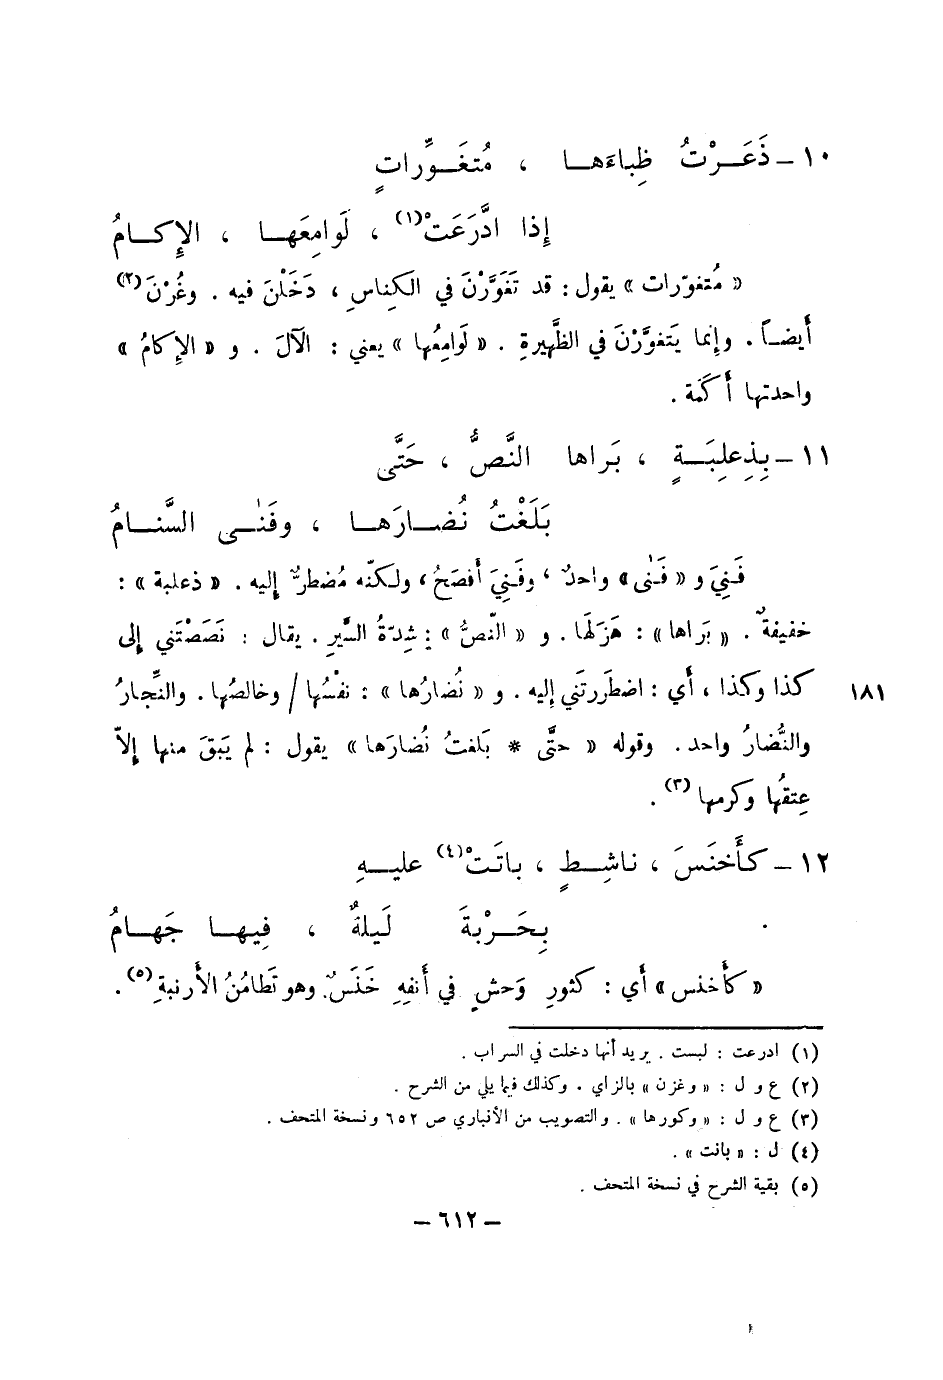 ١٠ – ذَعَـرْتُ ظِباءَهـا ، مُتغَـوِّراتٍ
إِذا ادَّرَعَتْ(١) ، لَوامِعَهـا ، الإِكـامُ
« مُتغوّرات » يقول : قد تَغَوَّرْنَ في الكِناسِ ، دَخَلْنَ فيه . وغُرْنَ(٢)
أَيضـاً . وإِنما يَتغوَّرْنَ في الظَّهيرةِ . « لَوامِعُها » يعني : الآلَ . و « الإِكامُ »
واحدتها أَكَمَة .
١١ – بِذِعلِبَـةٍ ، بَراها النَّصُّ ، حَتَّى
بَلَغْتُ نُضـارَهـا ، وفَنَـى السَّنـامُ
فَنِيَ و « فَنَى » واحدٌ ، وفَنِيَ أفصَحُ ، ولكنّه مُضطرٌّ إليه . « ذعلبة » :
خفيفةٌ . « بَراها » : هَزَلَها . و « النّصُّ » : شِدّةُ السَّيرِ . يقال : نَصَصْتَني إلى
كذا وكذا ، أي : اضطَررتَني إليه . و « نُضارُها » : نفْسُها / وخالصُها . والنِّجارُ ١٨١
والنُّضارُ واحد . وقوله « حتَّى * بَلغتُ نُضارَها » يقول : لم يَبقَ منها إلاّ
عِتقُها وكرمها(٣) .
١٢ – كأَخنَسَ ، ناشِـطٍ ، باتَـتْ(٤) عليـهِ
بِحَـرْبةَ لَيلةٌ ، فِيهـا جَهـامُ
« كأَخنس » أي : كثورِ وَحشٍ في أنفِهِ خَنَسٌ . وهو تَطامُنُ الأَرنبةِ(٥) .
(١) ادرعت : لبست . يريد أنها دخلت في السراب .
(٢) ع و ل : « وغزن » بالزاي . وكذلك فيما يلي من الشرح .
(٣) ع و ل : « وكورها » . والتصويب من الأنباري ص ٦٥٢ ونسخة المتحف .
(٤) ل : « بانت » .
(٥) بقية الشرح في نسخة المتحف .
– ٦١٢ –